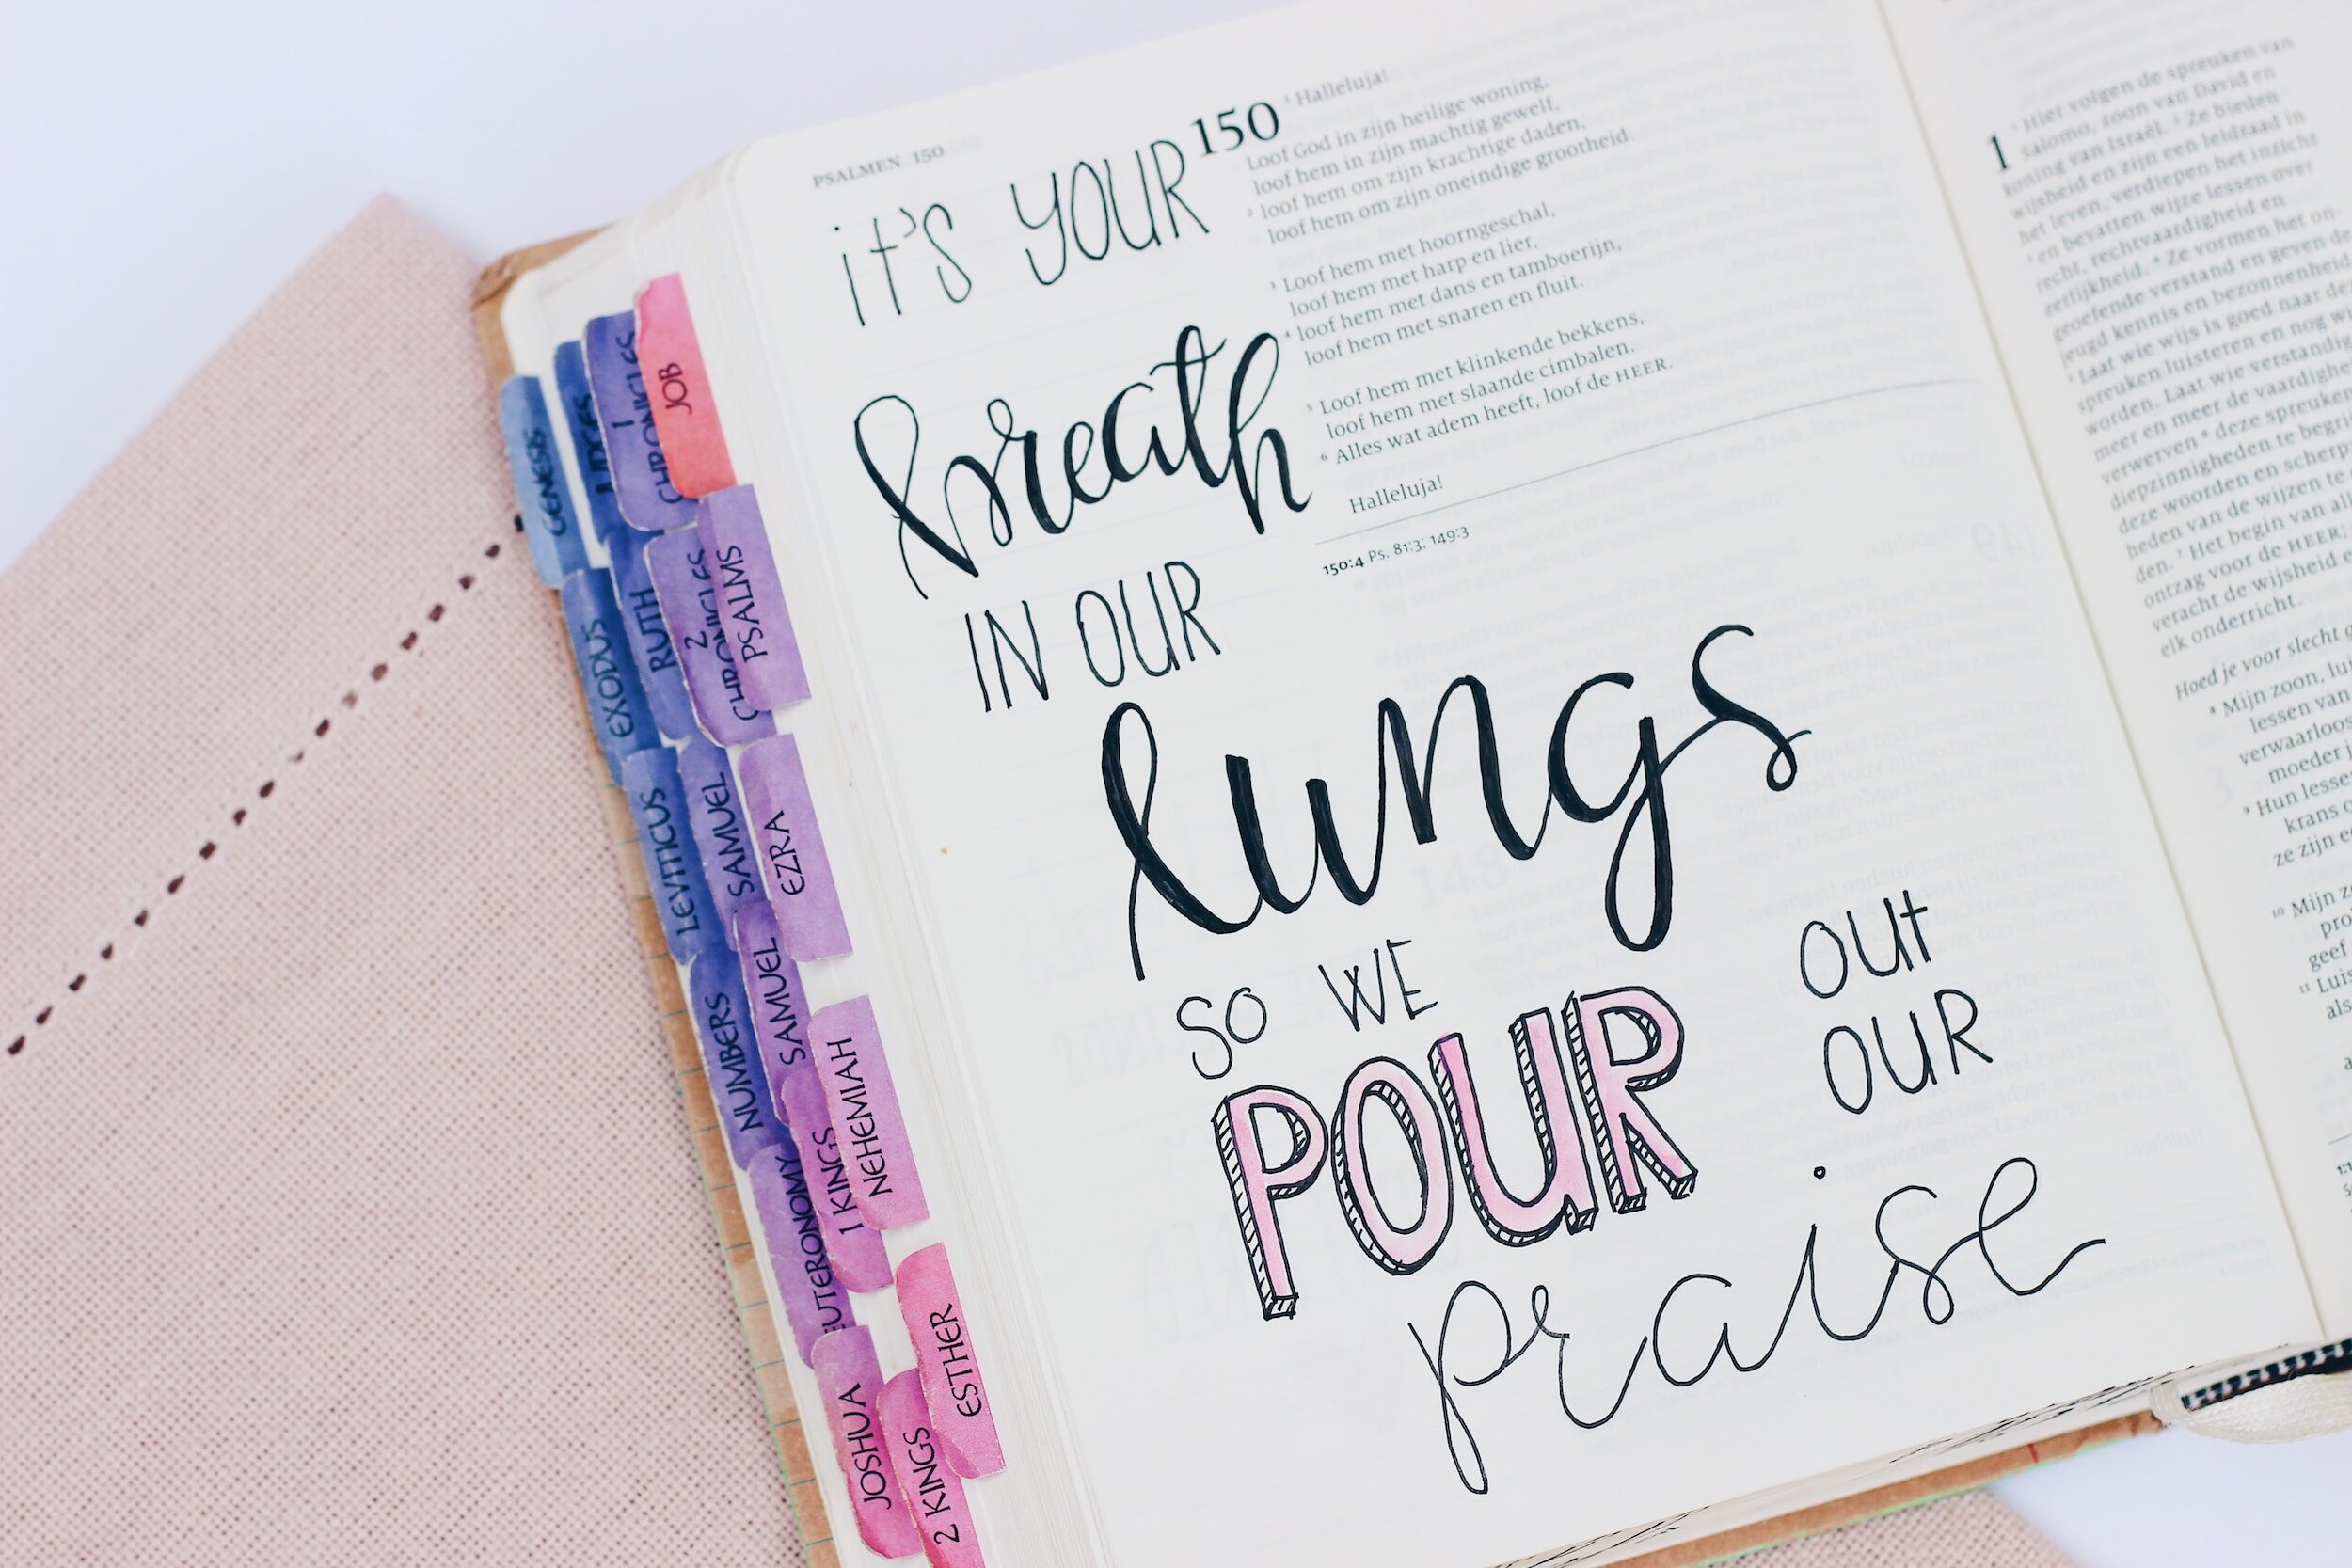 GENESIS
EXODUS
LEVITICUS
NUMBERS
JOSHUA
RUTH
SAMUEL
SAMUEL
1 KINGS
2 KINGS
1
CHRONICLES
2
CHRONICLES
EZRA
NEHEMIAH
ESTHER
JOB
PSALMS
PSALMEN 150
it's YOUR
breath
IN OUR
lungs
SO WE
POUR
OUt
OUR
praise
150
1 Halleluja!
Loof God in zijn heilige woning,
loof hem in zijn machtig gewelf,
2 loof hem om zijn krachtige daden,
loof hem om zijn oneindige grootheid.
3 Loof hem met hoorngeschal,
loof hem met harp en lier,
4 loof hem met dans en tamboerijn,
loof hem met snaren en fluit.
5 Loof hem met klinkende bekkens,
loof hem met slaande cimbalen.
6 Alles wat adem heeft, loof de HEER.
Halleluja!
150:4 Ps. 81:3; 149:3
1
1 Hier volgen de spreuken van
Salomo, zoon van David en
koning van Israël. 2 Ze bieden
wijsheid en zijn een leidraad in
het leven, verdiepen het inzicht
3 en bevatten wijze lessen over
recht, rechtvaardigheid en
eerlijkheid. 4 Ze vormen het on-
geoefende verstand en geven de
jeugd kennis en bezonnenheid
5 Laat wie wijs is goed naar de
spreuken luisteren en nog
worden. Laat wie verstandig
meer en meer de vaardighe
verwerven 6 deze spreuken
diepzinnigheden te begri
deze woorden en scherp
heden van de wijzen te
den. 7 Het begin van al
ontzag voor de HEERE
veracht de wijsheid e
elk onderricht.
Hoed je voor slecht
8 Mijn zoon, lui
lessen van
verwaarloos
moeder j
9 Hun lesse
krans
ze zijn e
10 Mijn z
geef
11 Luis
als